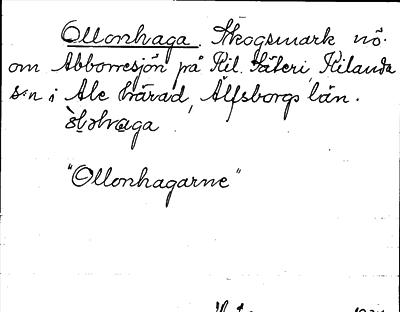 Ollonhaga. Skogsmark nö.
om Abborresjön på Kil. Säteri, Kilanda
s:n i Ale härad, Älfsborgs län.
"Ollonhagarne"